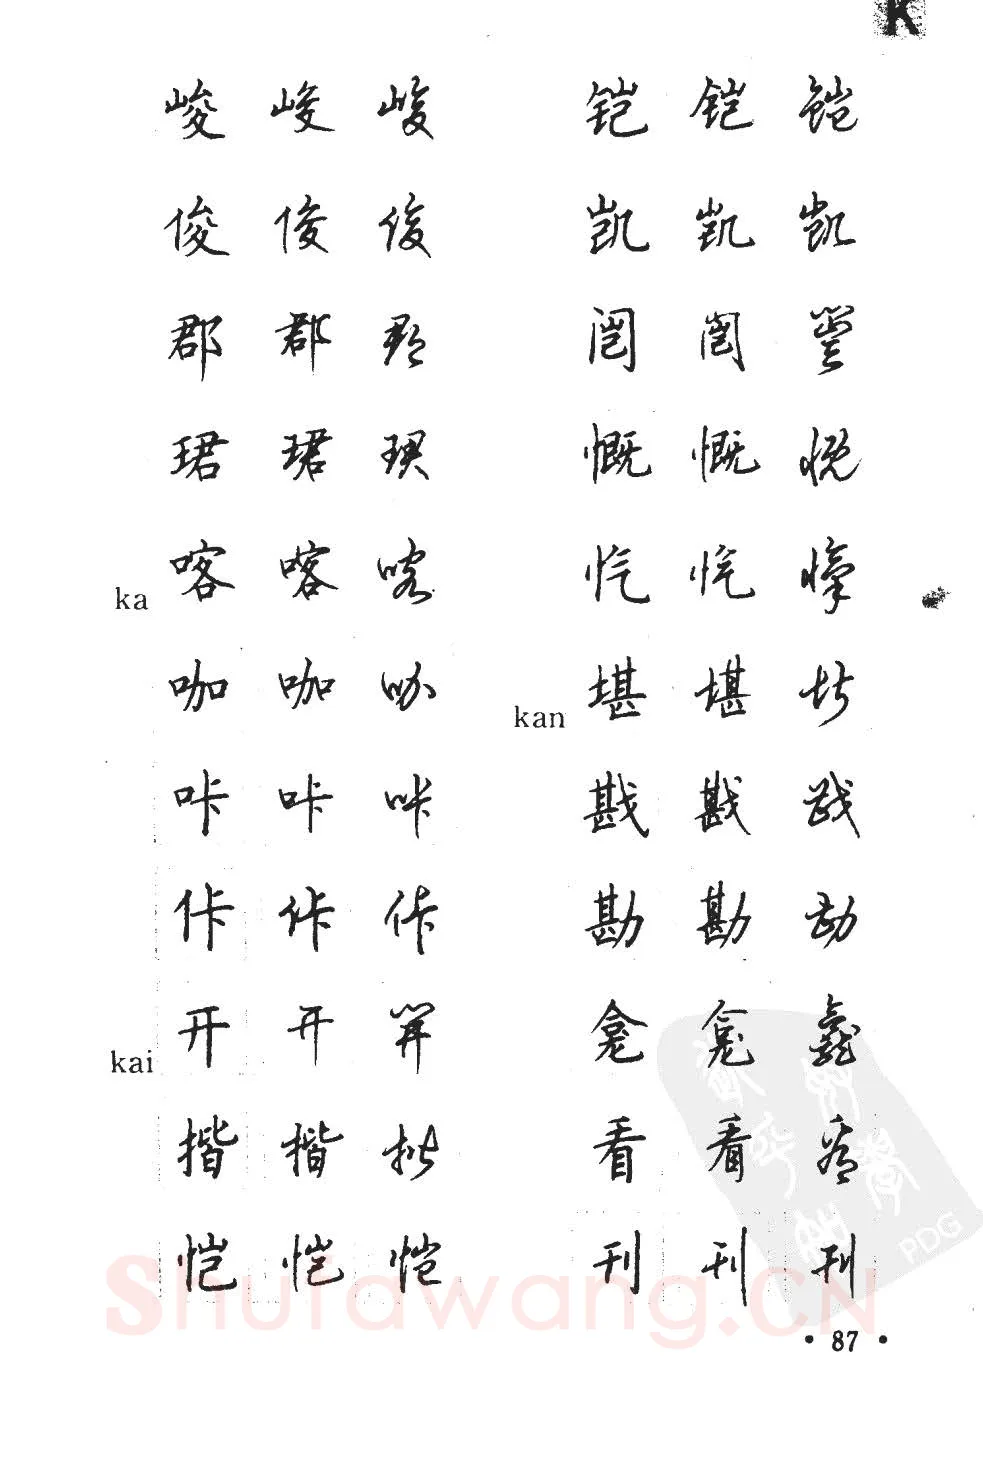 K
峻 峻 峻
俊 俊 俊
郡 郡 郡
珺 珺 珺
ka 喀 喀 喀
咖 咖 咖
咔 咔 咔
佧 佧 佧
kai 开 开 开
揩 揩 揩
恺 恺 恺
铠 铠 铠
凯 凯 凯
闿 闿 闿
慨 慨 慨
忾 忾 忾
kan 堪 堪 堪
戡 戡 戡
勘 勘 勘
龛 龛 龛
看 看 看
刊 刊 刊
PDG
Shufawang.CN
· 87 ·